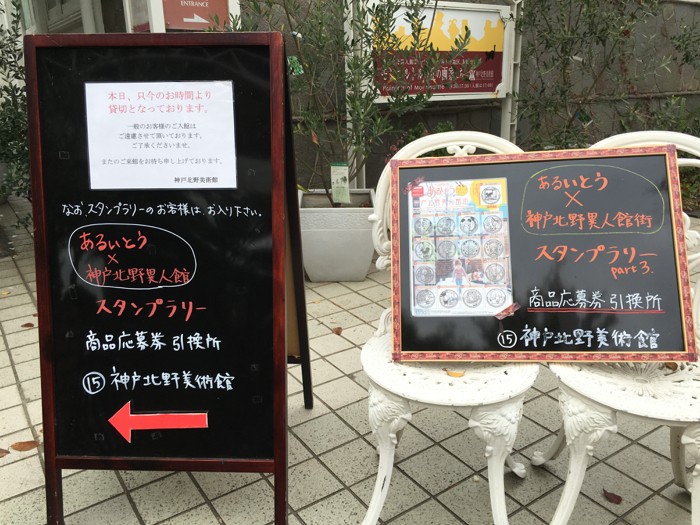 ENTRANCE
本日、只今のお時間より
貸切となっております。
一般のお客様のご入館は
ご遠慮させて頂いております。
ご了承くださいませ。
またのご来館をお待ち申し上げております。
神戸北野美術館
なお、スタンプラリーのお客様は、お入り下さい。
あるいとう
×
神戸北野異人館
スタンプラリー
商品応募券引換所
⑮神戸北野美術館
あるいとう
×
神戸北野異人館街
スタンプラリー
part 3.
商品応募券引換所
⑮神戸北野美術館